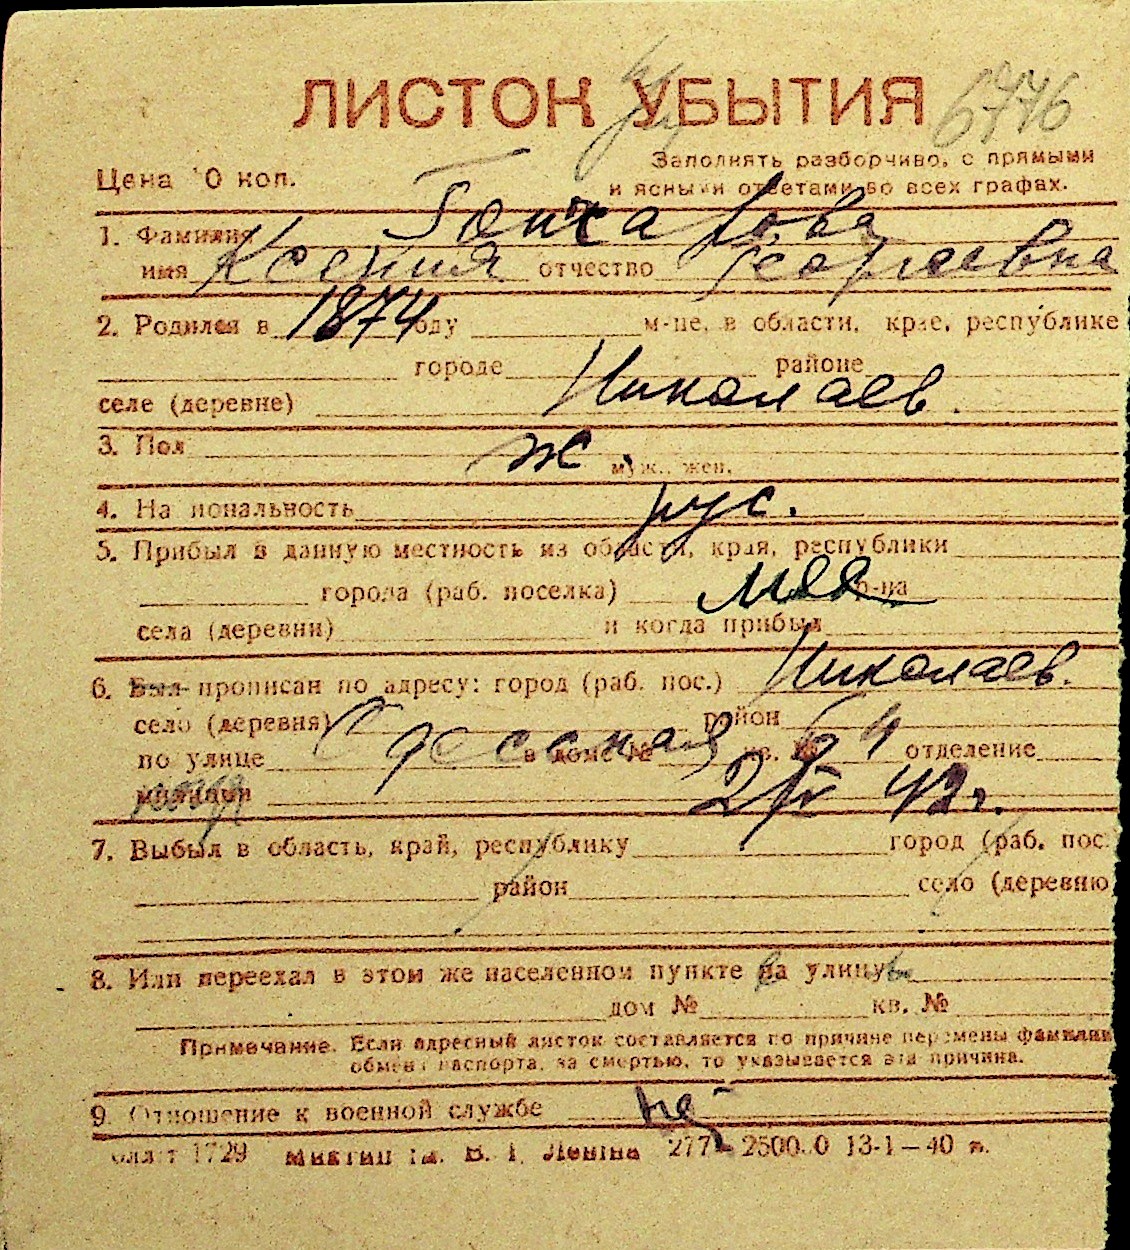 ЛИСТОК УБЫТИЯ
6776
Цена 10 коп.
Заполнять разборчиво, с прямыми
и ясными ответами во всех графах.
1. Фамилия Гончарова
имя Ксения отчество Георгиевна
2. Родился в 1874 году м-це, в области, крае, республике
городе районе
селе (деревне) Николаев.
3. Пол ж.
муж., жен.
4. Национальность рус.
5. Прибыл в данную местность из области, края, республики
города (раб. поселка) р-на
села (деревни) и когда прибыл
6. Был прописан по адресу: город (раб. пос.) Николаев.
село (деревня) район
по улице Одесская в доме № 64 кв. № отделение
милиции 42 г.
7. Выбыл в область, край, республику город (раб. пос.
район село (деревню
8. Или переехал в этом же населенном пункте на улицу
дом № кв. №
Примечание. Если адресный листок составляется по причине перемены фамилии
обмена паспорта, за смертью, то указывается эта причина.
9. Отношение к военной службе
1729 им. В. І. Леніна 277 – 2500.0 13-1–40 г.